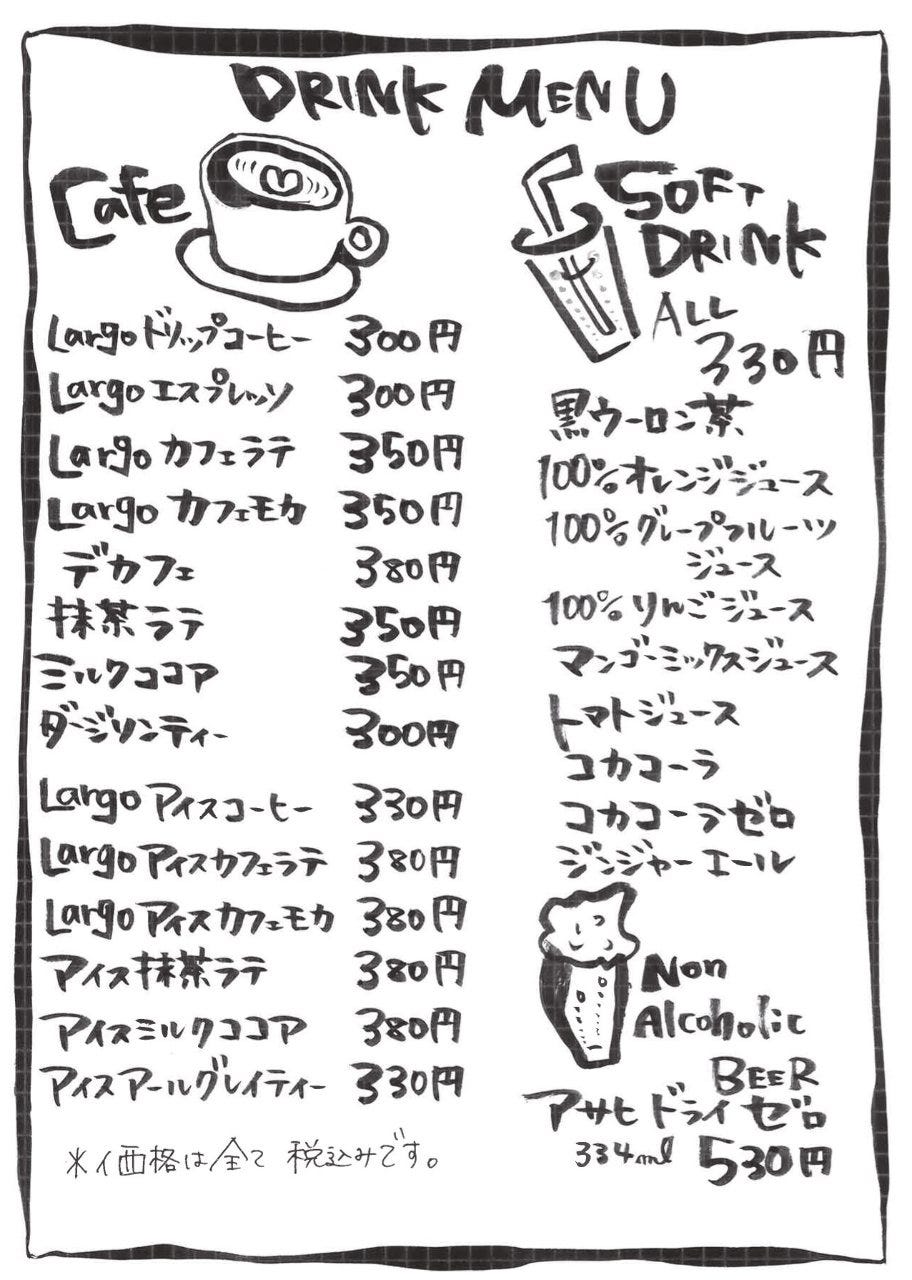 DRINK MENU
Cafe
Largoドリップコーヒー 300円
Largoエスプレッソ 300円
Largoカフェラテ 350円
Largoカフェモカ 350円
デカフェ 380円
抹茶ラテ 350円
ミルクココア 350円
ダージリンティー 300円
Largoアイスコーヒー 330円
Largoアイスカフェラテ 380円
Largoアイスカフェモカ 380円
アイス抹茶ラテ 380円
アイスミルクココア 380円
アイスアールグレイティー 330円
※価格は全て税込みです。
SOFT
DRINK
ALL
330円
黒ウーロン茶
100%オレンジジュース
100%グレープフルーツ
ジュース
100%りんごジュース
マンゴーミックスジュース
トマトジュース
コカコーラ
コカコーラゼロ
ジンジャーエール
Non
Alcoholic
BEER
アサヒドライゼロ
334ml 530円